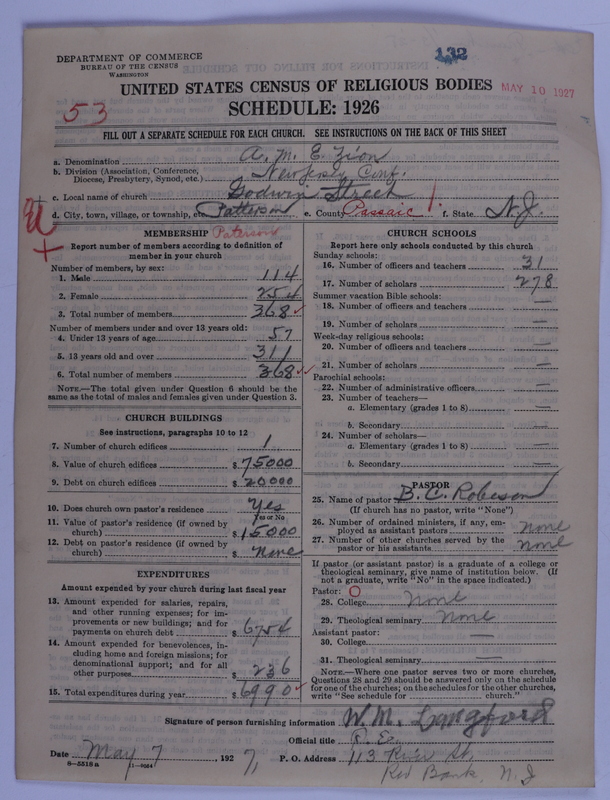 132
DEPARTMENT OF COMMERCE
BUREAU OF THE CENSUS
WASHINGTON
UNITED STATES CENSUS OF RELIGIOUS BODIES
MAY 10 1927
53
SCHEDULE: 1926
FILL OUT A SEPARATE SCHEDULE FOR EACH CHURCH. SEE INSTRUCTIONS ON THE BACK OF THIS SHEET
a. Denomination A. M. E. Zion
b. Division (Association, Conference, Diocese, Presbytery, Synod, etc.) New Jersey Conf.
c. Local name of church Godwin Street
d. City, town, village, or township, etc. Patterson e. County Passaic f. State N.J.
Paterson
MEMBERSHIP
Report number of members according to definition of
member in your church
Number of members, by sex:
1. Male 114
2. Female 254
3. Total number of members 368
Number of members under and over 13 years old:
4. Under 13 years of age 57
5. 13 years old and over 311
6. Total number of members 368
NOTE.—The total given under Question 6 should be the
same as the total of males and females given under Question 3.
CHURCH BUILDINGS
See instructions, paragraphs 10 to 12
7. Number of church edifices 1
8. Value of church edifices $75000
9. Debt on church edifices $20000
10. Does church own pastor's residence Yes
Yes or No
11. Value of pastor's residence (if owned by
church) $15000
12. Debt on pastor's residence (if owned by
church) $None
EXPENDITURES
Amount expended by your church during last fiscal year
13. Amount expended for salaries, repairs,
and other running expenses; for im-
provements or new building; and for
payments on church debt $6754
14. Amount expended for benevolences, in-
cluding home and foreign missions; for
denominational support; and for all
other purposes $236
15. Total expenditures during year $6990
CHURCH SCHOOLS
Report here only schools conducted by this church
Sunday schools:
16. Number of officers and teachers 31
17. Number of scholars 278
Summer vacation Bible schools:
18. Number of officers and teachers —
19. Number of scholars —
Week-day religious schools:
20. Number of officers and teachers —
21. Number of scholars —
Parochial schools:
22. Number of administrative officers —
23. Number of teachers—
a. Elementary (grades 1 to 8) —
b. Secondary —
24. Number of scholars—
a. Elementary (grades 1 to 8) —
b. Secondary —
PASTOR
25. Name of pastor B. C. Robeson
(If church has no pastor, write "None")
26. Number of ordained ministers, if any, em-
ployed as assistant pastors none
27. Number of other churches served by the
pastor or his assistants none
If pastor (or assistant pastor) is a graduate of a college or
theological seminary, give name of institution below. (If
not a graduate, write "No" in the space indicated.)
Pastor:
28. College None
29. Theological seminary None
Assistant pastor: —
30. College
31. Theological seminary —
NOTE.—Where one pastor serves two or more churches,
Questions 28 and 29 should be answered only on the schedule
for one of the churches; on the schedules for the other churches,
write "See schedule for church."
Signature of person furnishing information W. M. Langford
Official title P. E.
Date May 7, 1927, P. O. Address 113 River St,
8-5518a 11-9054 Red Bank, N. J